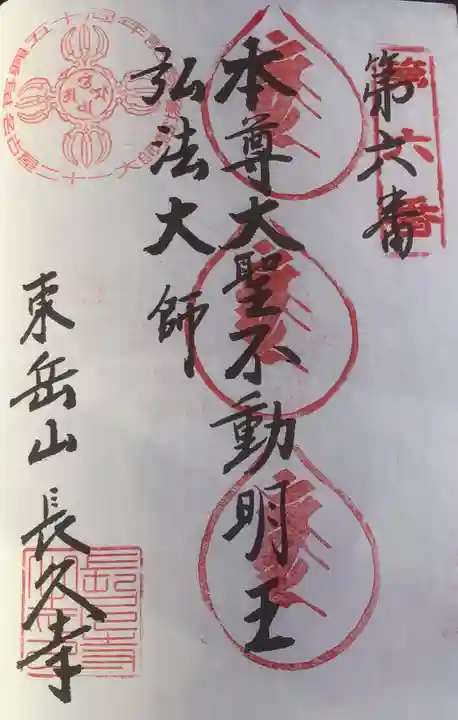 第六番
第六番
本尊大聖不動明王
弘法大師
東岳山長久寺
長久寺